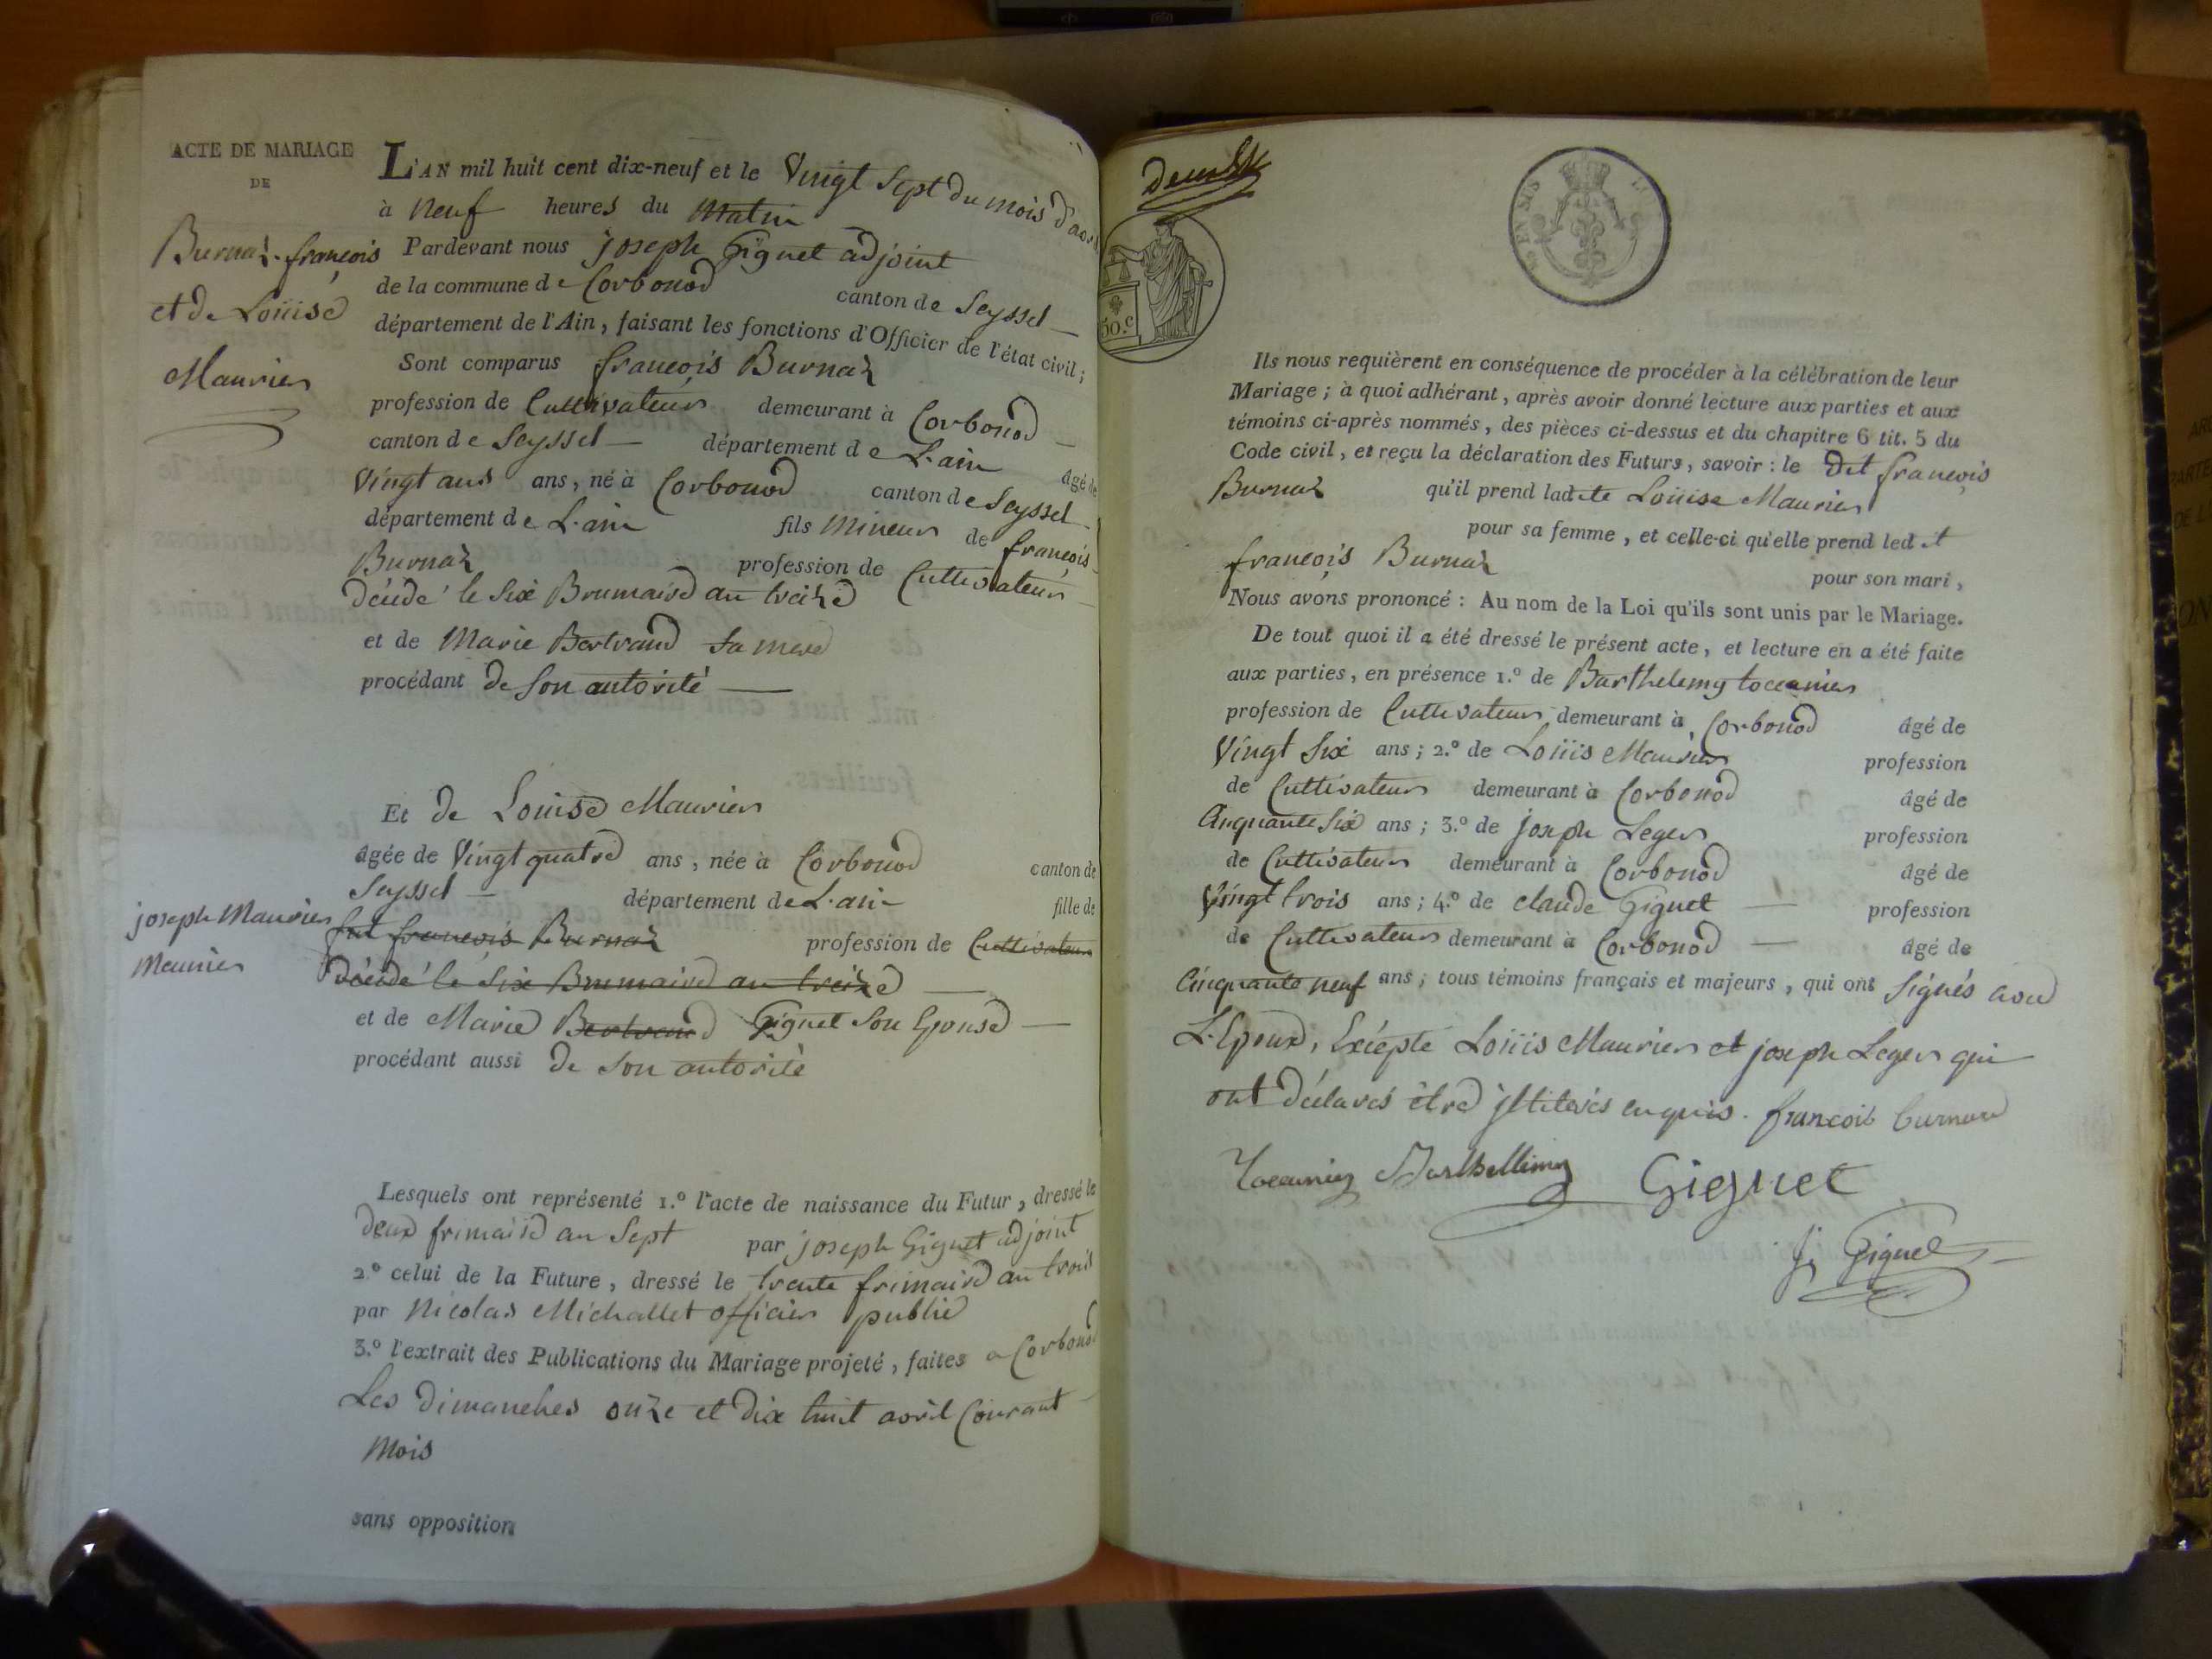 ACTE DE MARIAGE
DE
Burnaz françois
et de Loüise
Maurier
L'AN mil huit cent dix-neuf et le Vingt Sept du mois d'avril
à Neuf heures du Matin
Pardevant nous joseph Giguet adjoint
de la commune de Corbonod canton de Seyssel
département de l'Ain, faisant les fonctions d'Officier de l'état civil;
Sont comparus françois Burnaz
profession de Cultivateur demeurant à Corbonod
canton de Seyssel département de L'ain âgé de
Vingt ans ans, né à Corbonod canton de Seyssel
département de L'ain fils Mineur de françois
Burnaz profession de Cultivateur
décédé le Six Brumaire an treize
et de Marie Bertrand sa mere
procédant de Son autorité
Et de Louise Maurier
âgée de Vingt quatre ans, née à Corbonod canton de
Seyssel département de L'ain fille de
joseph Maurier
feu françois Burnaz profession de Cultivateur
Meunier
décédé le Six Brumaire an treize
et de Marie Bertrand Giguet Son Epouse
procédant aussi de Son autorité
Lesquels ont représenté 1.º l'acte de naissance du Futur, dressé le
deux frimaire an Sept par joseph Giguet adjoint
2.º celui de la Future, dressé le trente frimaire an trois
par Nicolas Michallet officier public
3.º l'extrait des Publications du Mariage projeté, faites a Corbonod
Les dimanches onze et dix huit avril Courant
Mois
sans opposition
EN SUS
50.c
Ils nous requièrent en conséquence de procéder à la célébration de leur
Mariage; à quoi adhérant, après avoir donné lecture aux parties et aux
témoins ci-après nommés, des pièces ci-dessus et du chapitre 6 tit. 5 du
Code civil, et reçu la déclaration des Futurs, savoir: le dit françois
Burnaz qu'il prend ladite Loüise Maurier
pour sa femme, et celle-ci qu'elle prend ledit
françois Burnaz pour son mari,
Nous avons prononcé: Au nom de la Loi qu'ils sont unis par le Mariage.
De tout quoi il a été dressé le présent acte, et lecture en a été faite
aux parties, en présence 1.º de Barthelemy tocanier
profession de Cultivateur demeurant à Corbonod âgé de
Vingt Six ans; 2.º de Loüis Maurier profession
de Cultivateur demeurant à Corbonod âgé de
Cinquante Six ans; 3.º de joseph Leger profession
de Cultivateur demeurant à Corbonod âgé de
Vingt trois ans; 4.º de claude Giguet profession
de Cultivateur demeurant à Corbonod âgé de
Cinquante neuf ans; tous témoins français et majeurs, qui ont Signés avec
L'Epoux, Exépté Loüis Maurier et joseph Leger qui
ont déclarés être jlliterés enquis. françois burnaz
Tocanier Barthellimy Gieguet
J. Giguet